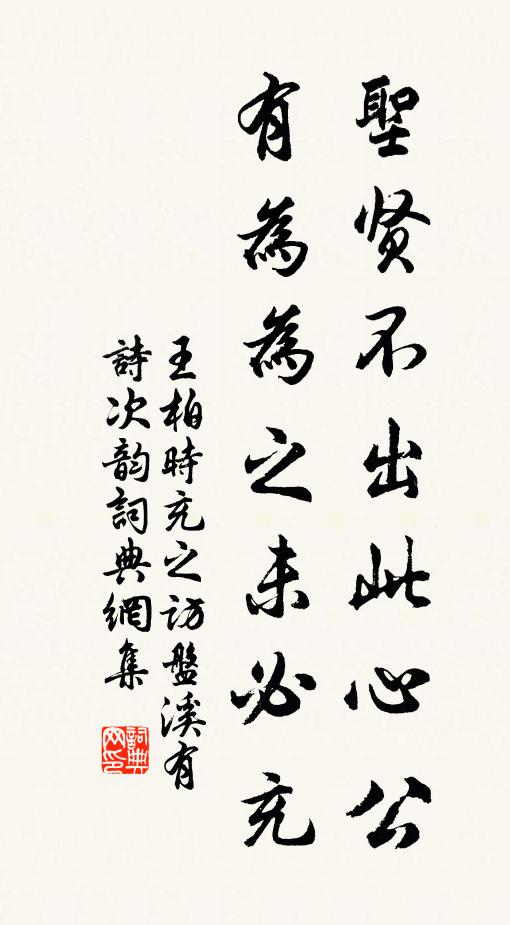 聖贤不出此心公
有為為之未必充
王柏時充之訪盤溪有
詩次韵詞典網集
詞典网印